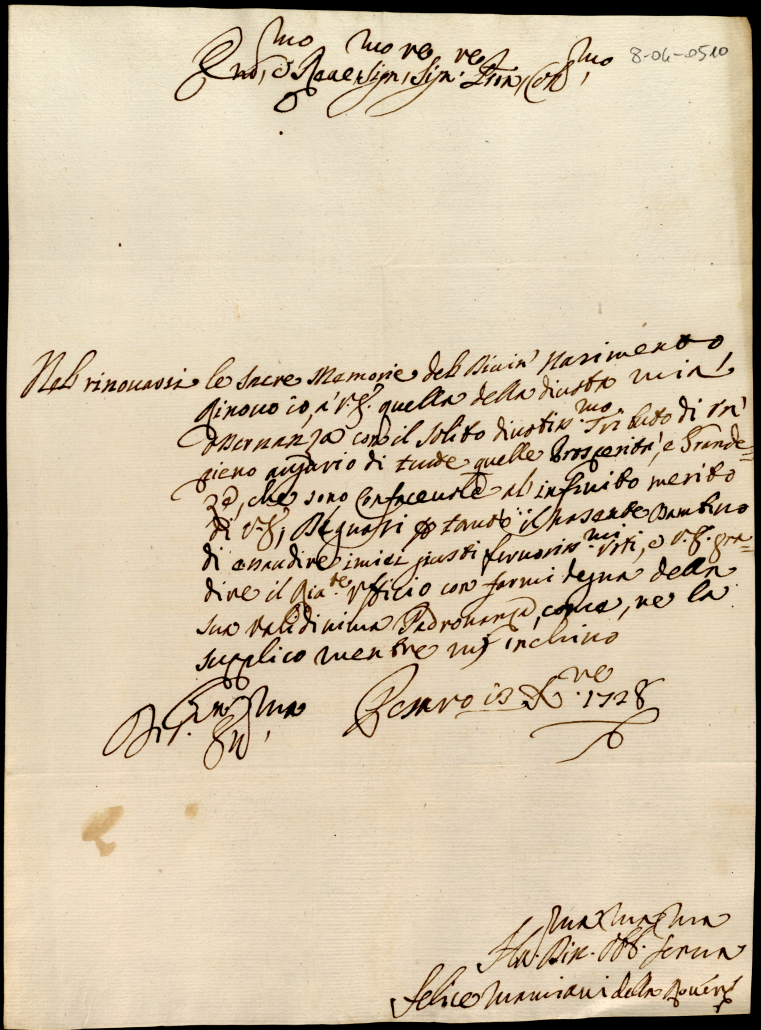 8-04-0510
Em.mo, e Rev.mo Sig.re, Sig.re Pron. Col.mo
Nel rinouarsi le sacre Memorie del Diuin' Nascimento
rinouo io, a' V. E. quella della diuota mia'
osseruanza con il solito diuotiss.mo Tributo di vn'
pieno augurio di tutte quelle Prosperità, e Grande=
ze, che sono confaceuole al infinito merito
di V. E., Degnassi tanto il Nascente Bambino
di esaudire i miei giusti feruoriss.mi Voti, e V. E. gra=
dire il ufficio con farmi degna della
sua validissima Padronanza, come, ne la
supplico mentre m'inchino
Di V. Em.za Pesaro 13 X.bre 1728
Hu.ma Diu.ma Obb.ma Serua
Felice Mamiani della Rouere